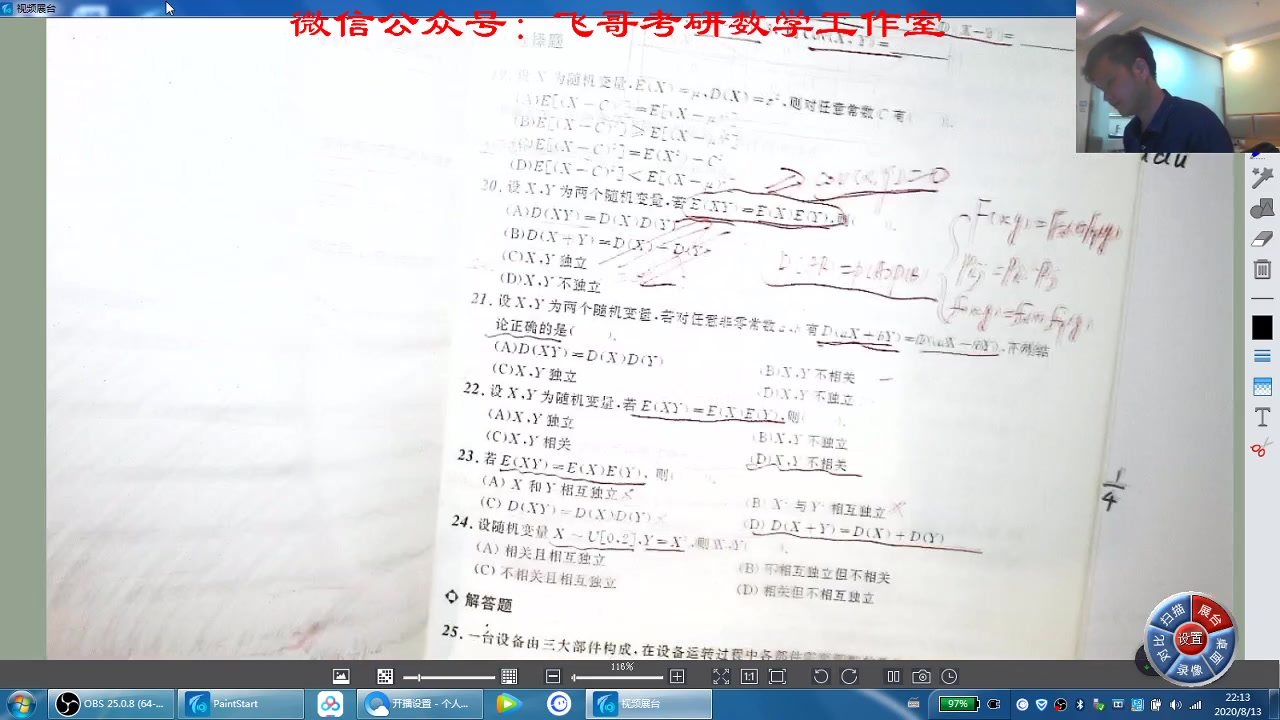 视频展台
微信公众号：飞哥考研数学工作室
19. 设 X 为随机变量,E(X)=μ,D(X)=σ²,则对任意常数 C 有( ).
(A)E[(X－C)²]=E[(X－μ)²]
(B)E[(X－C)²]≥E[(X－μ)²]
(C)E[(X－C)²]=E(X²)－C²
(D)E[(X－C)²]<E[(X－μ)²]
20. 设 X,Y 为两个随机变量,若 E(XY)=E(X)E(Y),则( ).
(A)D(XY)=D(X)D(Y)
(B)D(X＋Y)=D(X)＋D(Y)
(C)X,Y 独立
(D)X,Y 不独立
21. 设 X,Y 为两个随机变量,若对任意非零常数 a,b 有 D(aX＋bY)=D(aX－bY),下列结
论正确的是( ).
(A)D(XY)=D(X)D(Y)
(B)X,Y 不相关
(C)X,Y 独立
(D)X,Y 不独立
22. 设 X,Y 为随机变量,若 E(XY)=E(X)E(Y),则( ).
(A)X,Y 独立
(B)X,Y 不独立
(C)X,Y 相关
(D)X,Y 不相关
23. 若 E(XY)=E(X)E(Y), 则( ).
(A) X 和 Y 相互独立
(B) X² 与 Y² 相互独立
(C) D(XY)=D(X)D(Y)
(D) D(X＋Y)=D(X)＋D(Y)
24. 设随机变量 X ～ U[0,2],Y=X²,则 X,Y( ).
(A) 相关且相互独立
(B) 不相互独立但不相关
(C) 不相关且相互独立
(D) 相关但不相互独立
解答题
25. 一台设备由三大部件构成,在设备运转过程中各部件
1/4
扫描
展台
对比
设置
录像
116%
1:1
OBS 25.0.8 (64-...
PaintStart
开播设置 - 个人...
视频展台
97%
22:13
2020/8/13